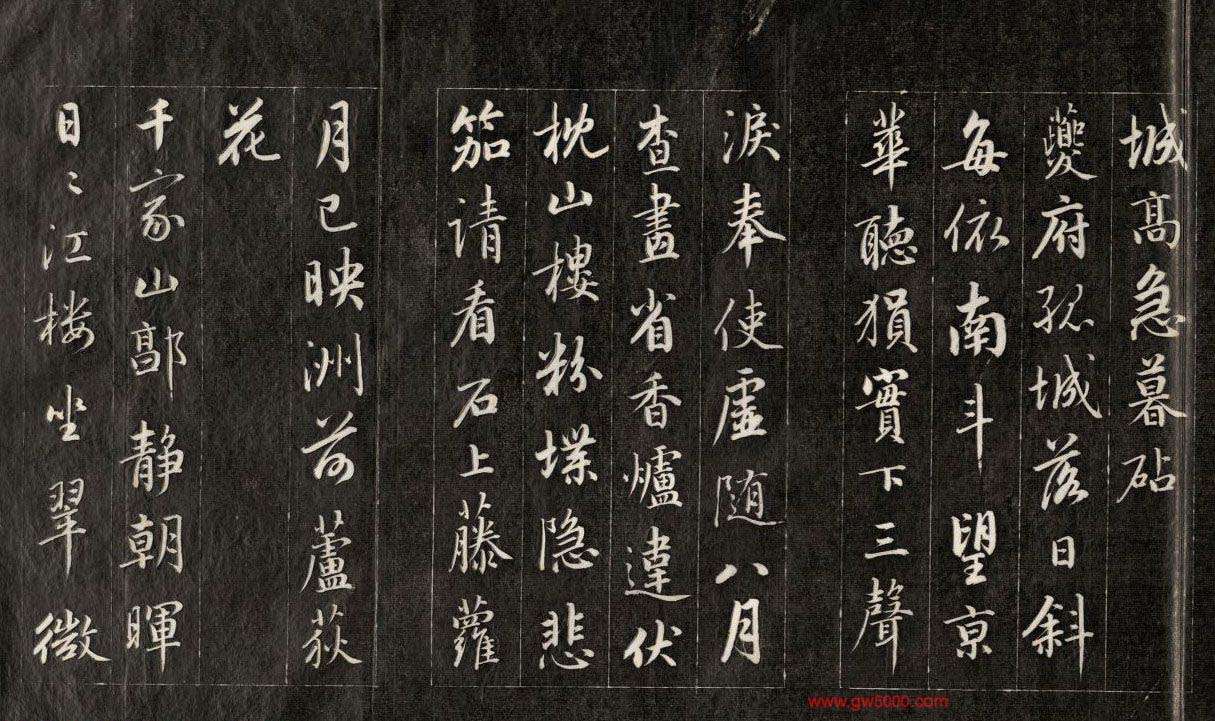 城高急暮砧
夔府孤城落日斜
每依南斗望京
華聽猨實下三聲
淚奉使虛隨八月
查畫省香爐違伏
枕山樓粉堞隐悲
笳请看石上藤蘿
月已映洲前蘆荻
花
千家山郭静朝暉
日〻江楼坐翠微
www.gw5000.com